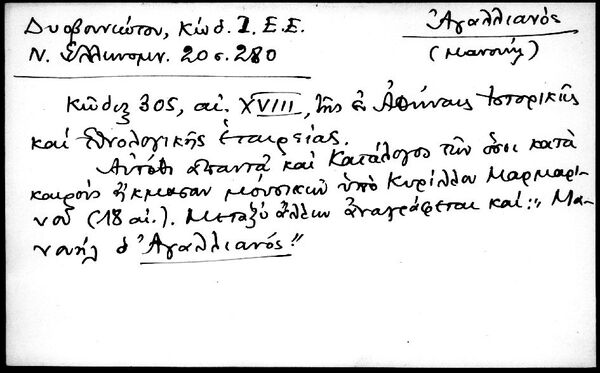 Δυοβουνιώτου, Κώδ. Ι. Ε. Ε.
Ν. Ἑλληνομν. 20 σ. 280
Ἀγαλλιανός
(Μανουήλ)
Κῶδιξ 305, αἰ. XVIII, τῆς ἐν Ἀθήναις Ἱστορικῆς
καὶ Ἐθνολογικῆς Ἑταιρείας.
Αὐτόθι ἀπαντᾷ καὶ Κατάλογος τῶν ὅσοι κατὰ
καιροὺς ἤκμασαν μουσικῶν ὑπὸ Κυρίλλου Μαρμαρι-
νοῦ (18 αἰ.). Μεταξὺ ἄλλων ἀναγράφεται καί: "Μα-
νουὴλ ὁ Ἀγαλλιανός"